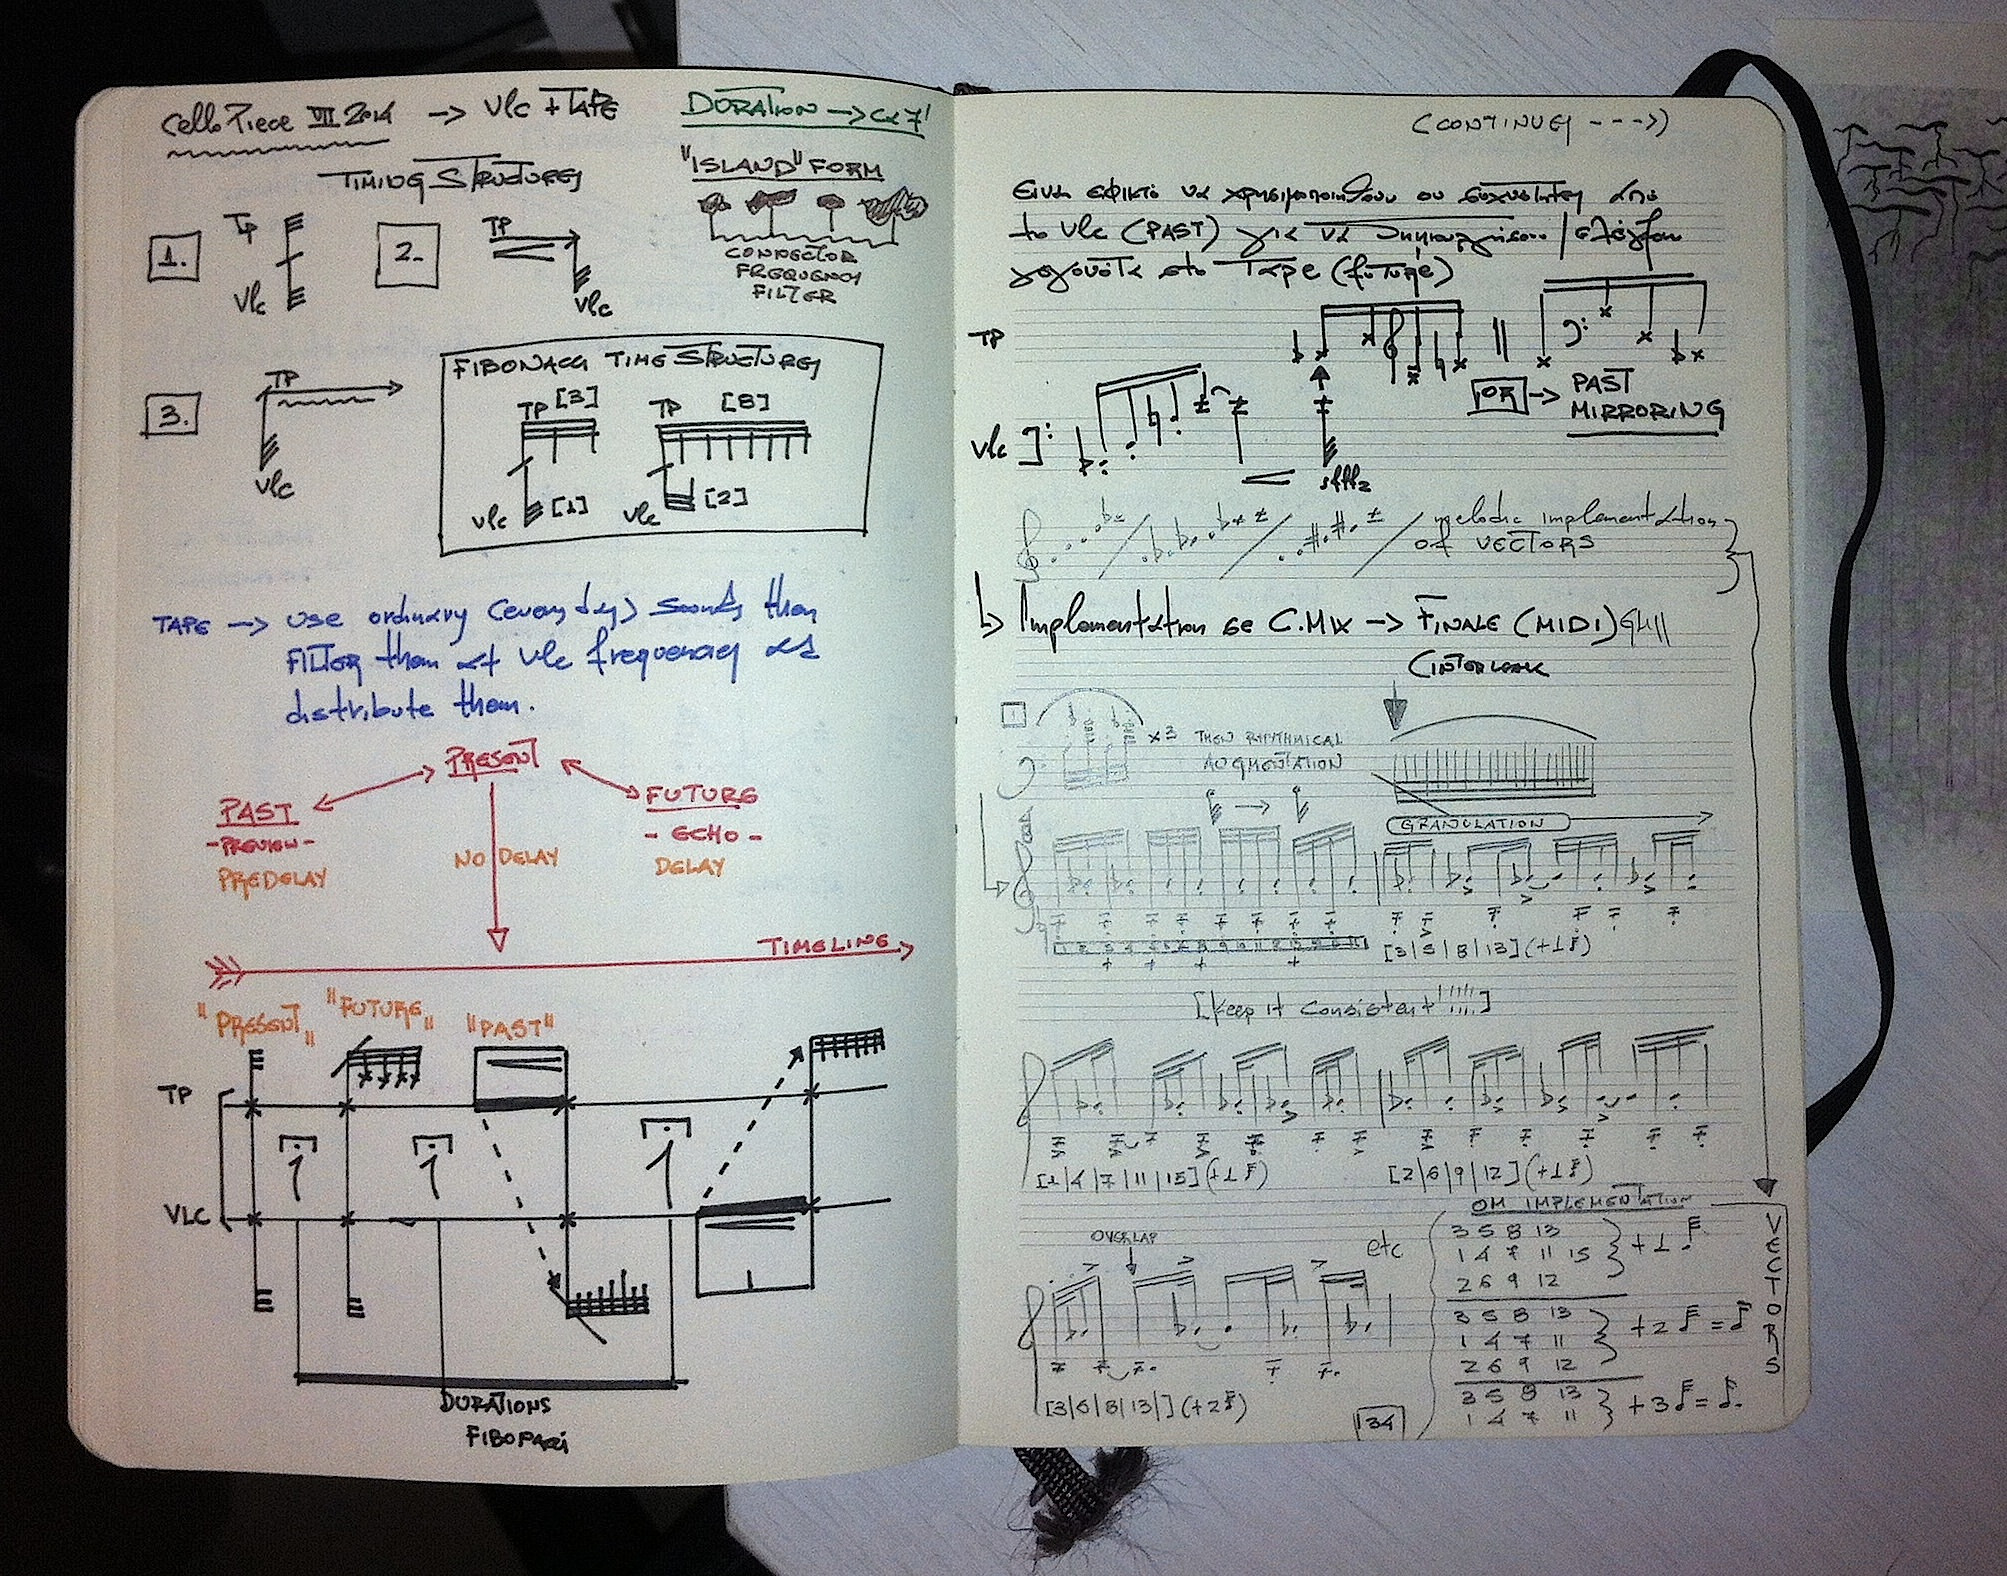 Cello Piece VII 2014 → Vlc + TAPE
DURATION → ca 7'
TIMING STRUCTURES
"ISLAND" FORM
CONNECTOR
FREQUENCY
FILTER
1.
TP
Vlc
2.
TP
Vlc
3.
TP
Vlc
FIBONACCI TIME STRUCTURES
TP [3]
TP [8]
Vlc [1]
Vlc [2]
TAPE → use ordinary (everyday) sounds then
FILTER them at Vlc frequency as
distribute them.
PRESENT
PAST
FUTURE
- PREVIEW -
- ECHO -
PREDELAY
NO DELAY
DELAY
TIMELINE
"PRESENT"
"FUTURE"
"PAST"
TP
VLC
DURATIONS
(CONTINUES --->)
Είναι εφικτό να χρησιμοποιηθούν οι συχνότητες από
το Vlc (PAST) για να δημιουργήσουν / ελέγξουν
γεγονότα στο Tape (future)
TP
OR → PAST
MIRRORING
Vlc
sfffz
melodic implementation
of VECTORS
Implementation σε C.Mix → FINALE (MIDI)
1
x3
THEN RHYTHMICAL
AUGMENTATION
GRANULATION
[3|5|8|13] (+1)
[Keep it consistent!!!!!]
[1|4|7|11|15] (+1)
[2|6|9|12] (+1)
OM IMPLEMENTATION
OVERLAP
etc
3 5 8 13
1 4 7 11 15 + 1
2 6 9 12
3 5 8 13
1 4 7 11 + 2 =
2 6 9 12
3 5 8 13
1 4 7 11 + 3 =
VECTORS
[3|5|8|13|] (+2)
134